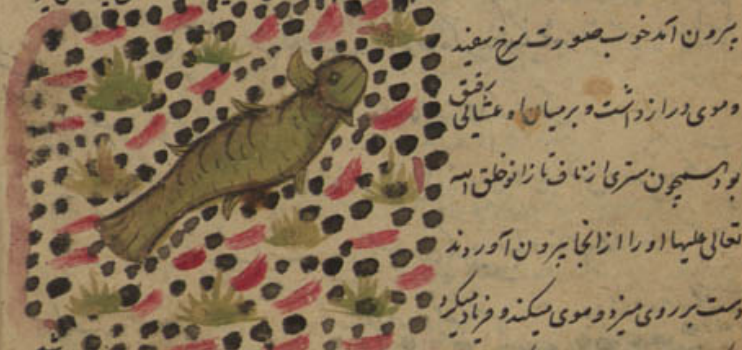 بیرون آمد خوب صورت سرخ سفید
وموی دراز داشت و بر میان او غشائی رقیق
بود همچون ستری از ناف تا زانو خلق الله
تعالی علیها او را از انجا بیرون آوردند
دست بر روی میزد و موی میکند و فریاد میکرد